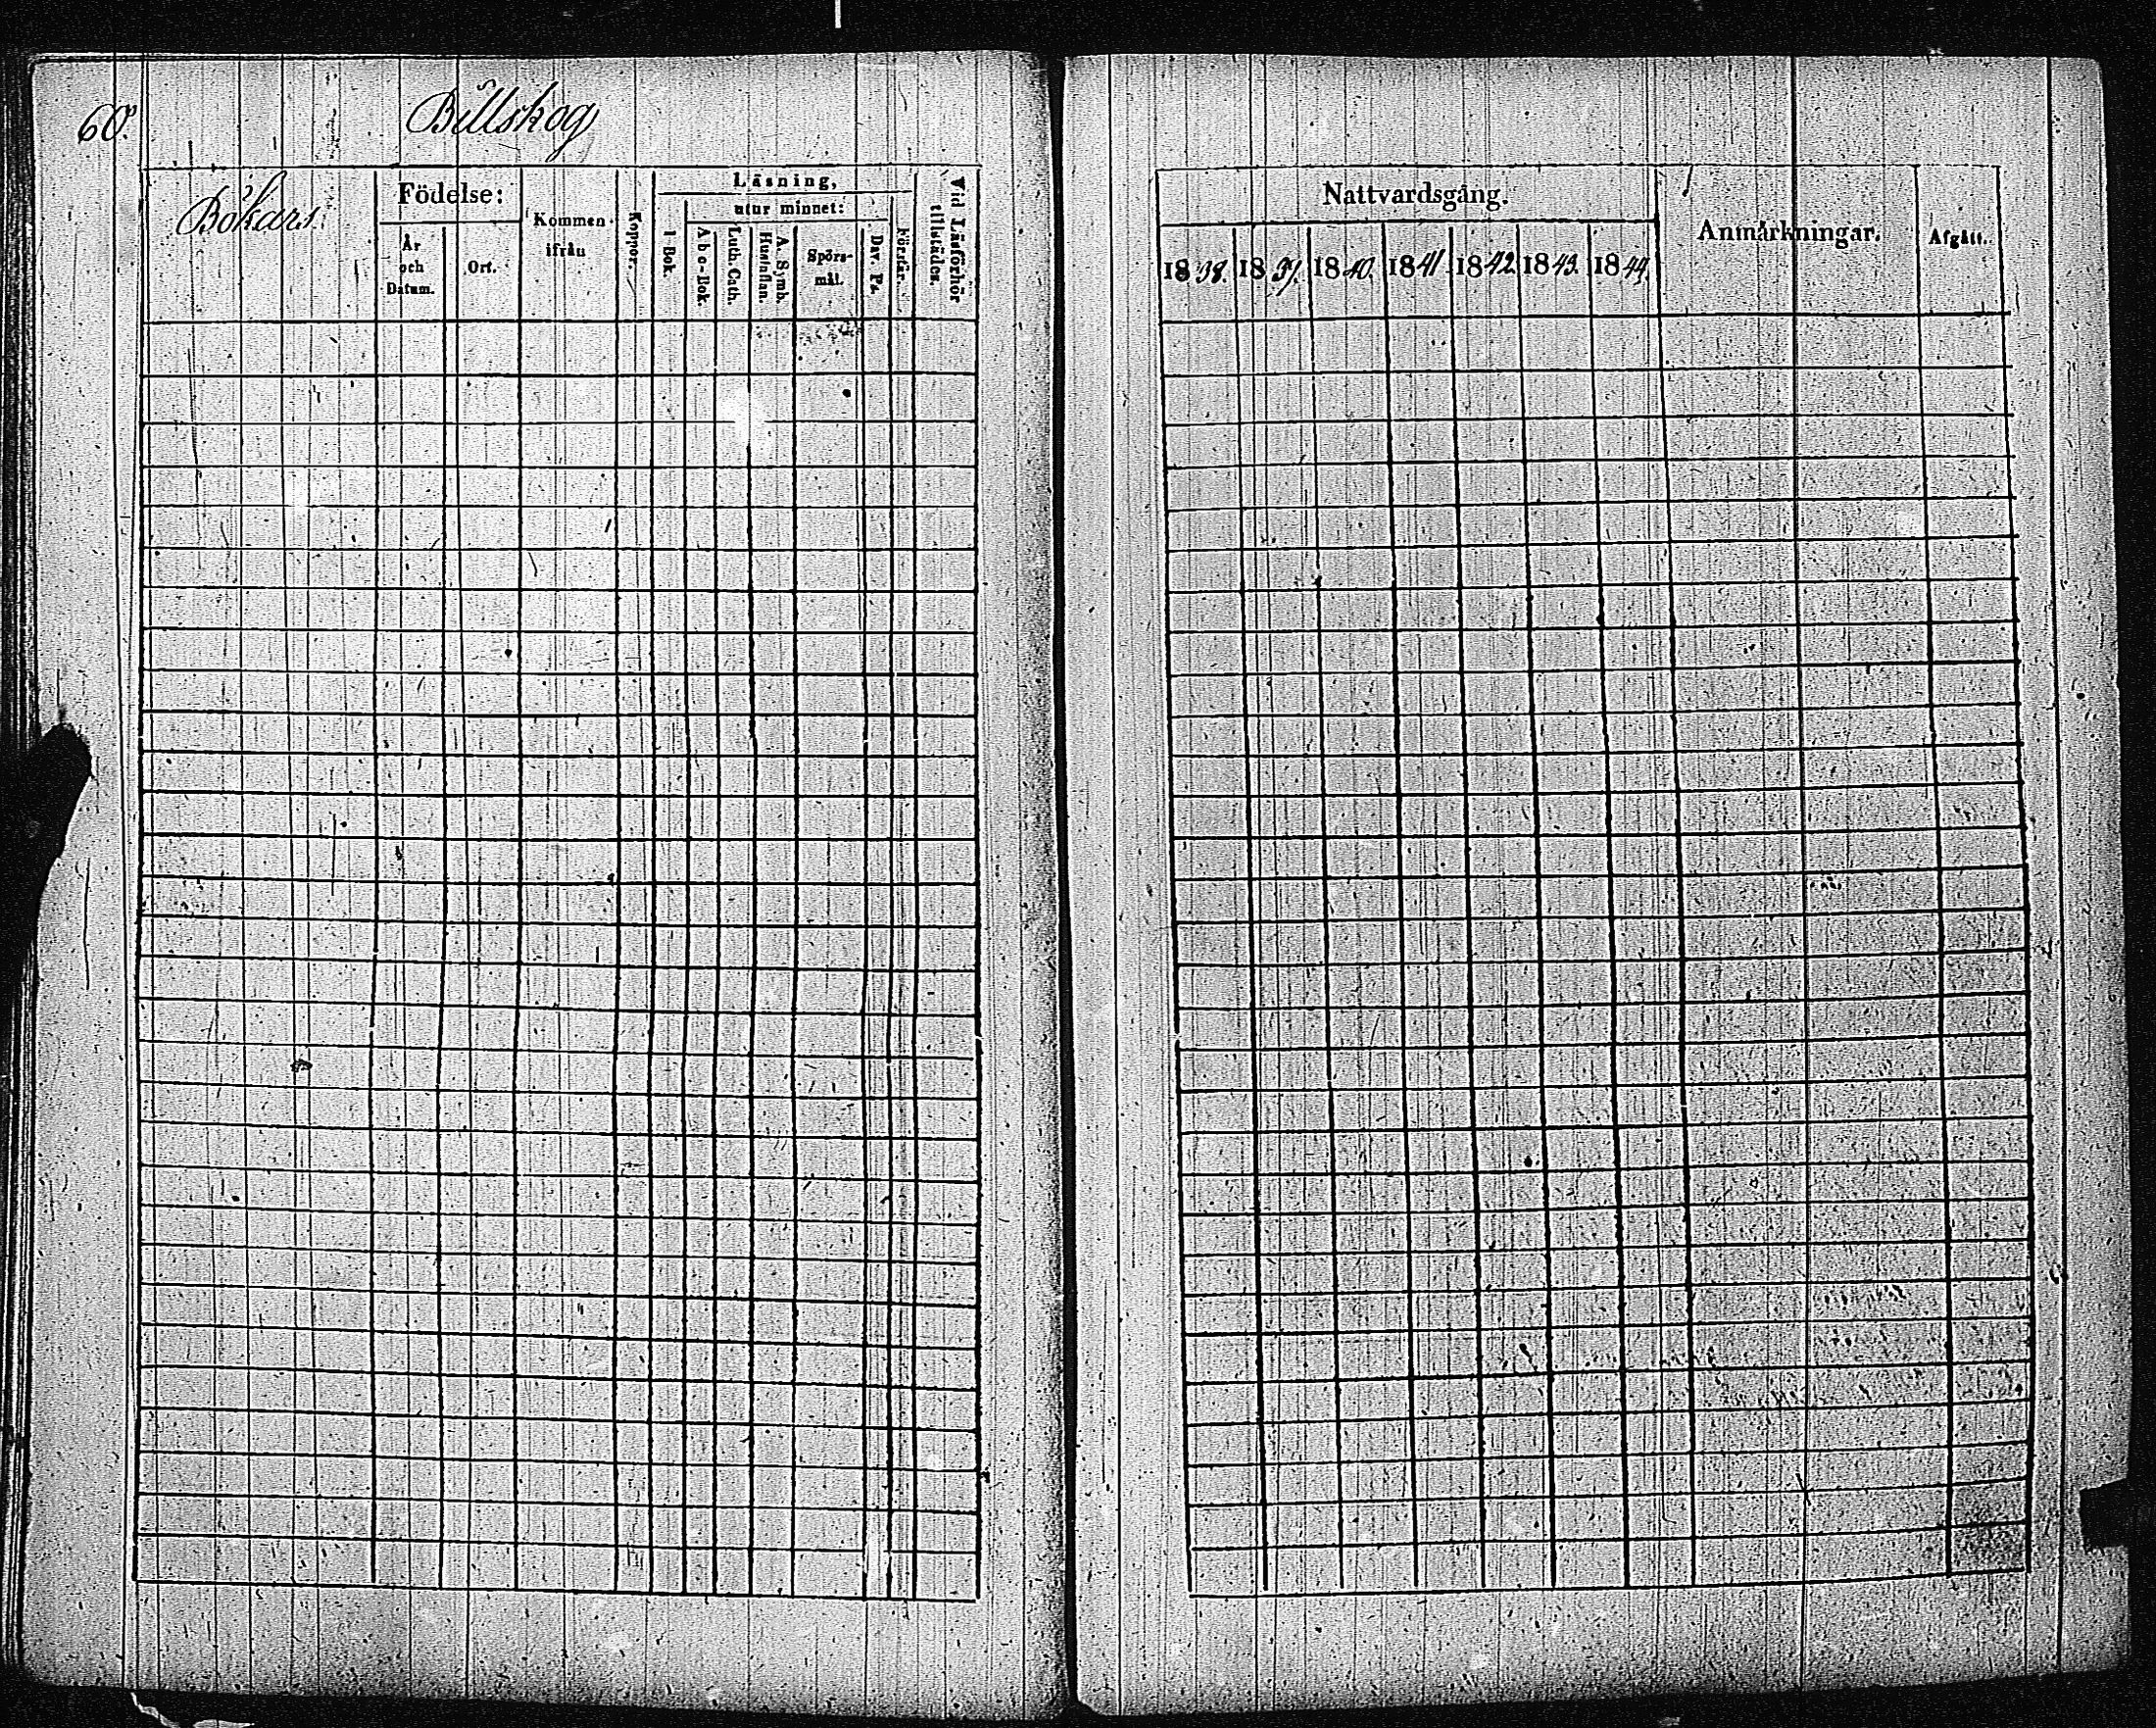 60.
Billskog
Bökars.
Födelse:
År och Datum.
Ort.
Kommen ifrån
Koppor.
Läsning,
utur minnet:
I Bok.
A b c-Bok.
Luth. Cath.
A. Symb. Hustaflan.
Spörs-mål.
Dav. Ps.
Förstår.
Vid Läsförhör tillstädes.
Nattvardsgång.
1838. 1839. 1840. 1841. 1842. 1843. 1844.
Anmärkningar.
Afgått.